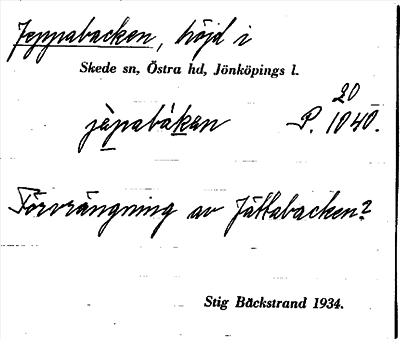 Jeppabacken, höjd i
Skede sn, Östra hd, Jönköpings l.
20
jäpabákan P. 1040.
Förvrängning av Jättabacken?
Stig Bäckstrand 1934.